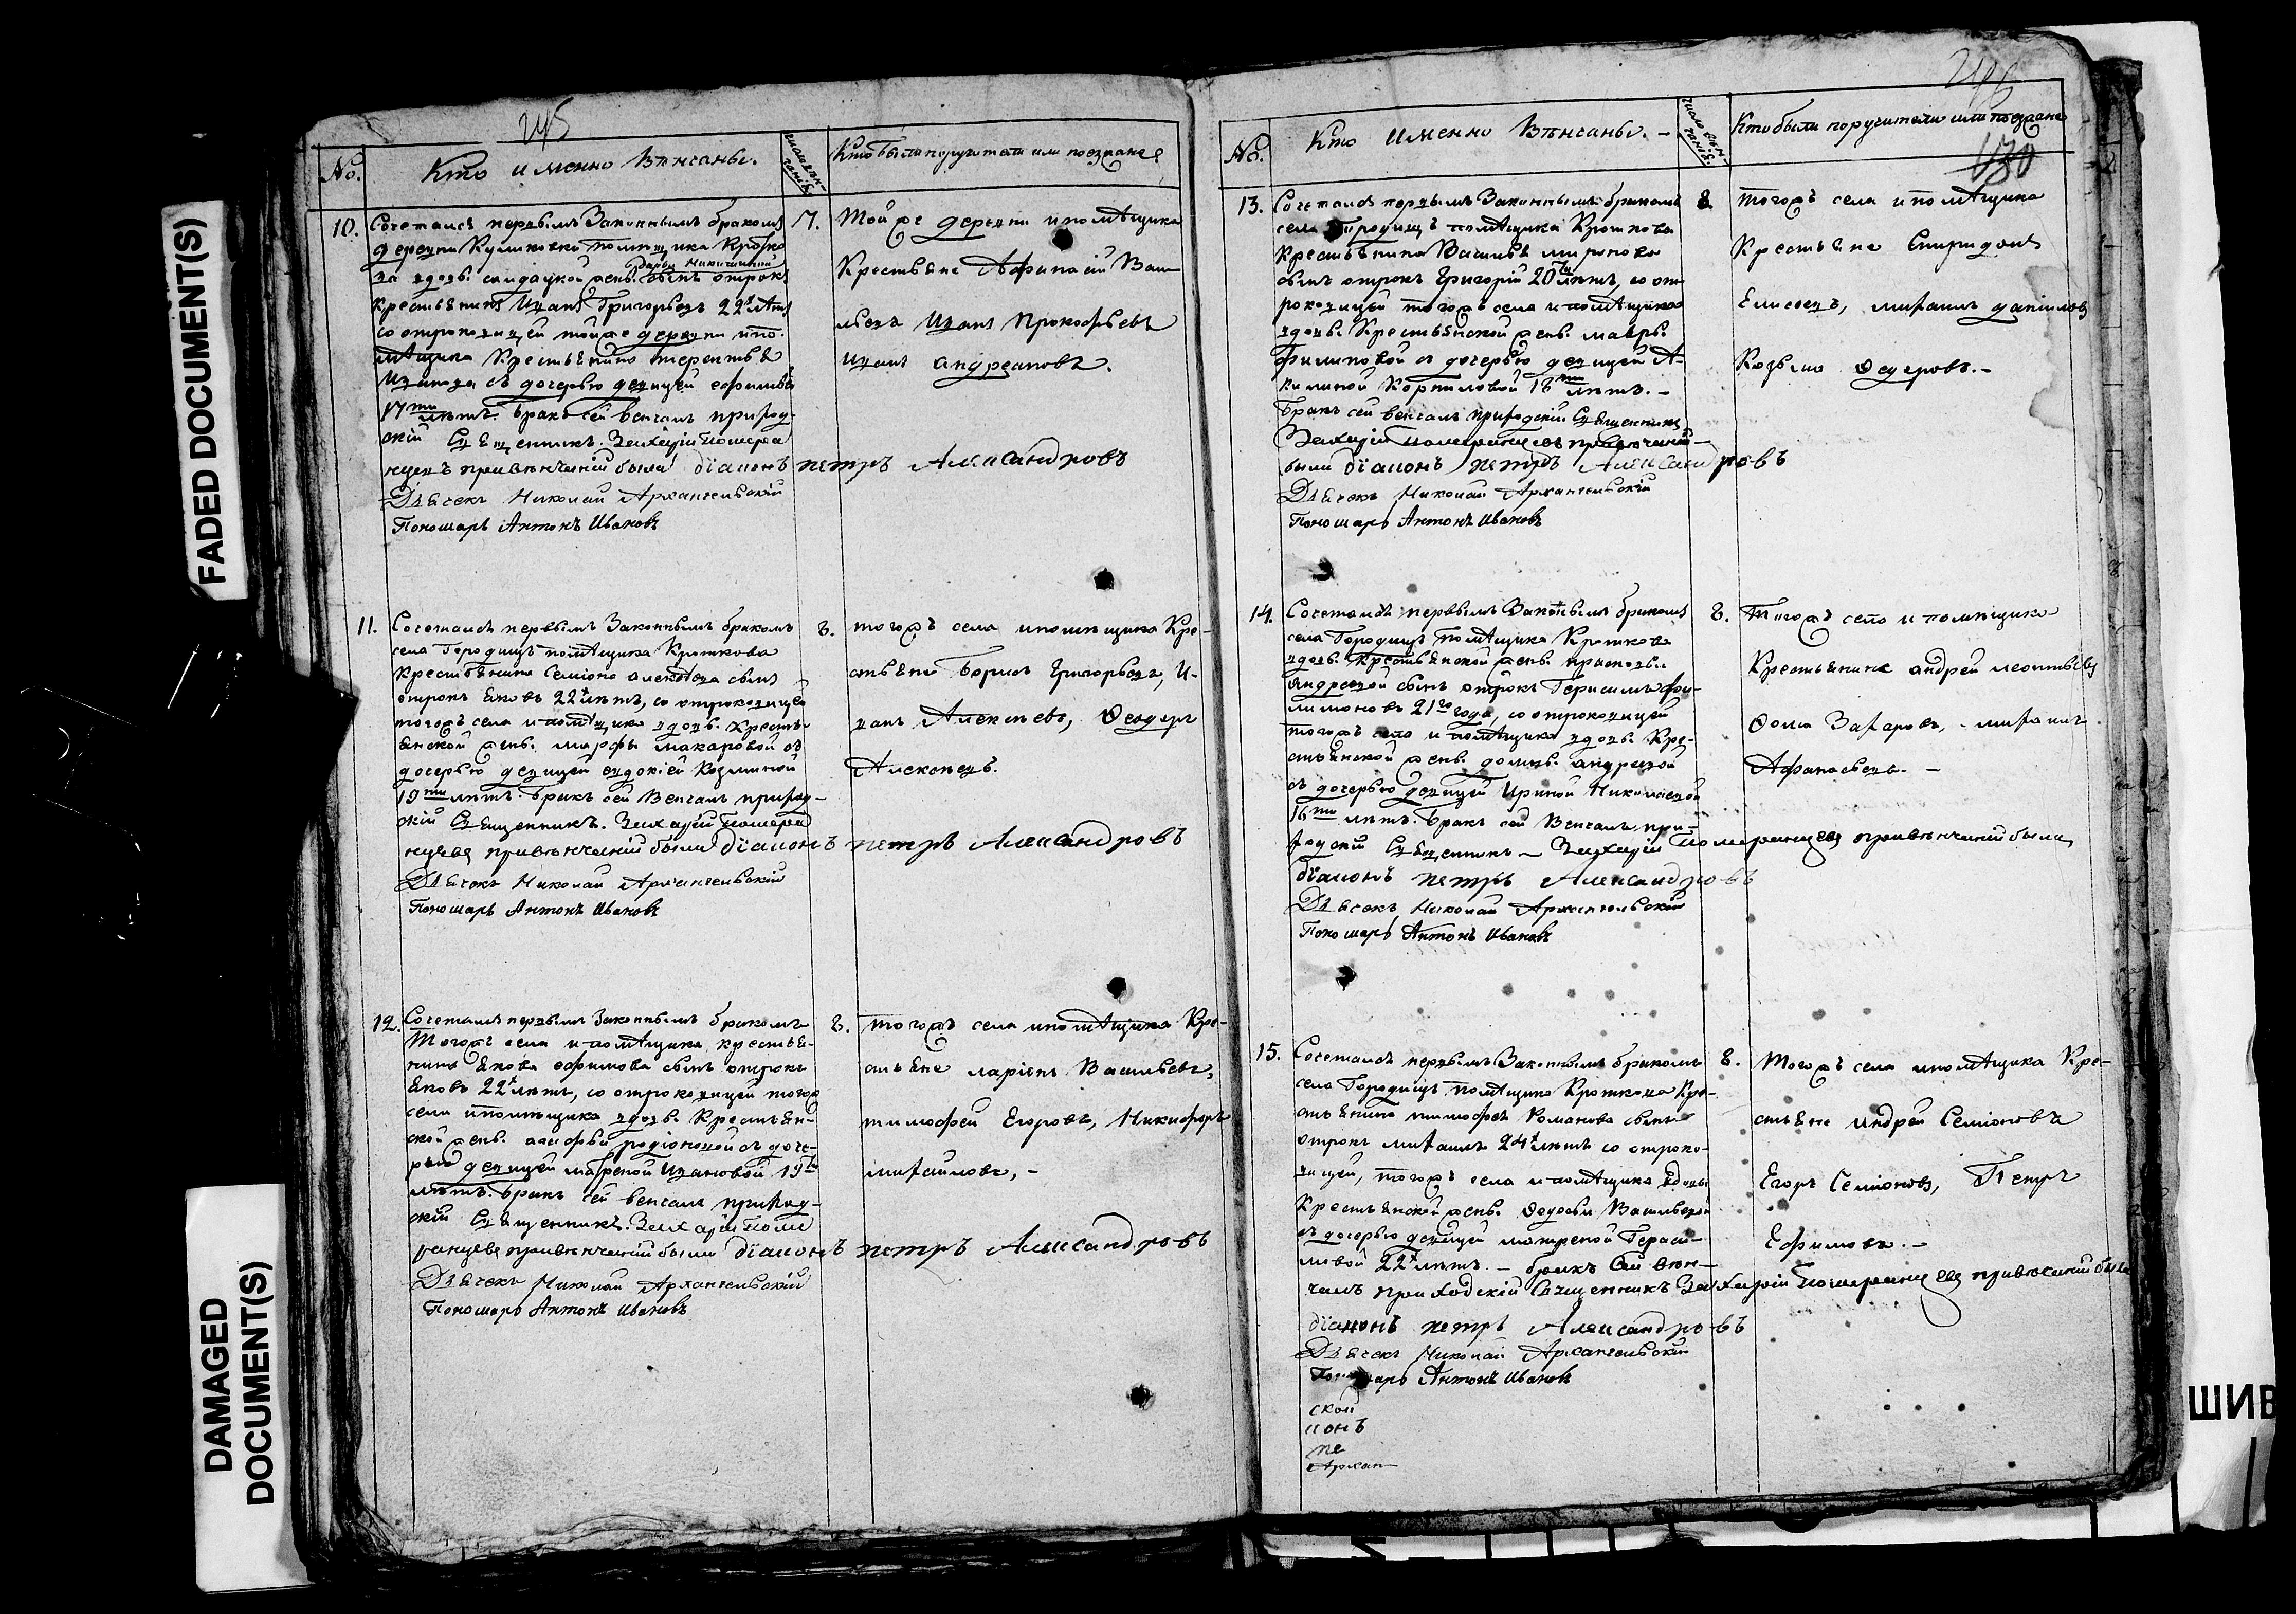 FADED DOCUMENT(S)
DAMAGED
DOCUMENT(S)
245
No.
Кто именно Вѣнчаны.
число вѣн-
чанiя.
Кто были поручители или поезжане
10.
Сочетался первымъ Законнымъ бракомъ
деревни Куликовки помѣщика Кротко
ва вдовы солдатской жены Дарьи Никитиной сынъ отрокъ
крестьянинъ Иванъ Григорьевъ 22х лѣтъ
со отроковицей той же деревни и по-
мѣщика Крестьянина терентья
Иванова съ дочерью девицей
17ти лѣтъ. Бракъ сей венчалъ приход-
скiй Священникъ. Захарiй Помера
нцевъ привѣнчанiи были дiаконъ петръ Александровъ
Дьячекъ Николай Архангельскiй
Пономарь Антонъ Ивановъ
17.
Той же деревни и помѣщика
Крестьяне Афанасiй Васи
льевъ Иванъ Прокофьевъ
Иванъ андреановъ.
11.
Сочетался первымъ Законнымъ бракомъ
села Городищъ помѣщика Кроткова
Крестьянина Семiона алексѣева сынъ
отрокъ Яковъ 22х лѣтъ, со отроковицей
тогожъ села и помѣщика вдовы Кресть-
янской жены марфы макаровой съ
дочерью девицей евдокiей Козминой
19ти лѣтъ. Бракъ сей Венчалъ приход-
скiй Священникъ. Захарiй Померан
нцевъ привѣнчанiи были дiаконъ петръ Александровъ
Дьячекъ Николай Архангельскiй
Пономарь Антонъ Ивановъ
8.
тогожъ села и помѣщика Кре-
стьяне Борисъ Григорьевъ, И-
ванъ Алексѣевъ, Ѳеодоръ
Алексѣевъ.
12.
Сочетался первымъ Законнымъ бракомъ
Тогожъ села и помѣщика крестья-
нина Якова ефимова сынъ отрокъ
Яковъ 22х лѣтъ, со отроковицей тогож
села и помѣщика вдовы Крестьян-
ской жены родiоновой съ доче-
рью девицей матреной Ивановой 19ти
лѣтъ. Бракъ сей венчалъ приход-
скiй Священникъ. Захарiй Поме
ранцевъ привѣнчанiи были дiаконъ петръ Александровъ
Дьячекъ Николай Архангельскiй
Пономарь Антонъ Ивановъ
8.
тогожъ села и помѣщика Кре-
стьяне ларiонъ Васильевъ,
тимофей Егоровъ, Никифоръ
михайловъ, -
246
No.
Кто именно Вѣнчаны. -
число вѣн-
чанiя.
Кто были поручители или поезжане
430
13.
Сочетался первымъ Законнымъ бракомъ
села Городищъ помѣщика Кроткова
Крестьянина Василья миронова
сынъ отрокъ Григорiй 20ти лѣтъ, со от-
роковицей тогожъ села и помѣщика
вдовы Крестьянской жены мавры
филиповой съ дочерью девицей А-
килиной Корниловой 18ти лѣтъ. -
Бракъ сей венчалъ приходскiй Священникъ
Захарiй Померанцевъ привѣнчанiи
были дiаконъ петръ Александровъ
Дьячекъ Николай Архангельскiй
Пономарь Антонъ Ивановъ
8.
тогожъ села и помѣщика
Крестьяне Спиридонъ
Елисеевъ, михаилъ даниловъ
Козьма Ѳедоровъ. -
14.
Сочетался первымъ Законнымъ бракомъ
села Городищъ помѣщика Кроткова
вдовы Крестьянской жены прасковьи
Андреевой сынъ отрокъ Герасимъ фи-
лимоновъ 21го года, со отроковицей
тогожъ села и помѣщика вдовы Кре-
стьянской жены домны андреевой
съ дочерью девицей Ириной Николаевой
16ти лѣтъ. Бракъ сей Венчалъ при-
ходскiй Священникъ - Захарiй Померанцевъ привѣнчанiи были,
дiаконъ петръ Александровъ
Дьячекъ Николай Архангельскiй
Пономарь Антонъ Ивановъ
8.
Тогожъ села и помѣщика
Крестьянинъ андрей леонтьевъ
Ѳома Захаровъ, - михаилъ
Афанасьевъ. -
15.
Сочетался первымъ Законнымъ бракомъ
села Городищъ помѣщика Кроткова Кре-
стьянина тимофея Романова сынъ
отрокъ михаилъ 24х лѣтъ со отроко-
вицей, тогожъ села и помѣщика вдовы
Крестьянской жены Ѳедосьи Васильевой
съ дочерью девицей матреной Гераси-
мовой 22х лѣтъ. - бракъ Сей вѣн-
чалъ приходскiй Священникъ Захарiй Померанцевъ привѣнчанiи были
дiаконъ петръ Александровъ
Дьячекъ Николай Архангельскiй
Пономарь Антонъ Ивановъ
ской
конъ
пе
Архан
8.
Тогожъ села и помѣщика Кре-
стьяне Андрей Семiоновъ
Егоръ Семiоновъ, Петръ
Ефимовъ. -
ШИВ